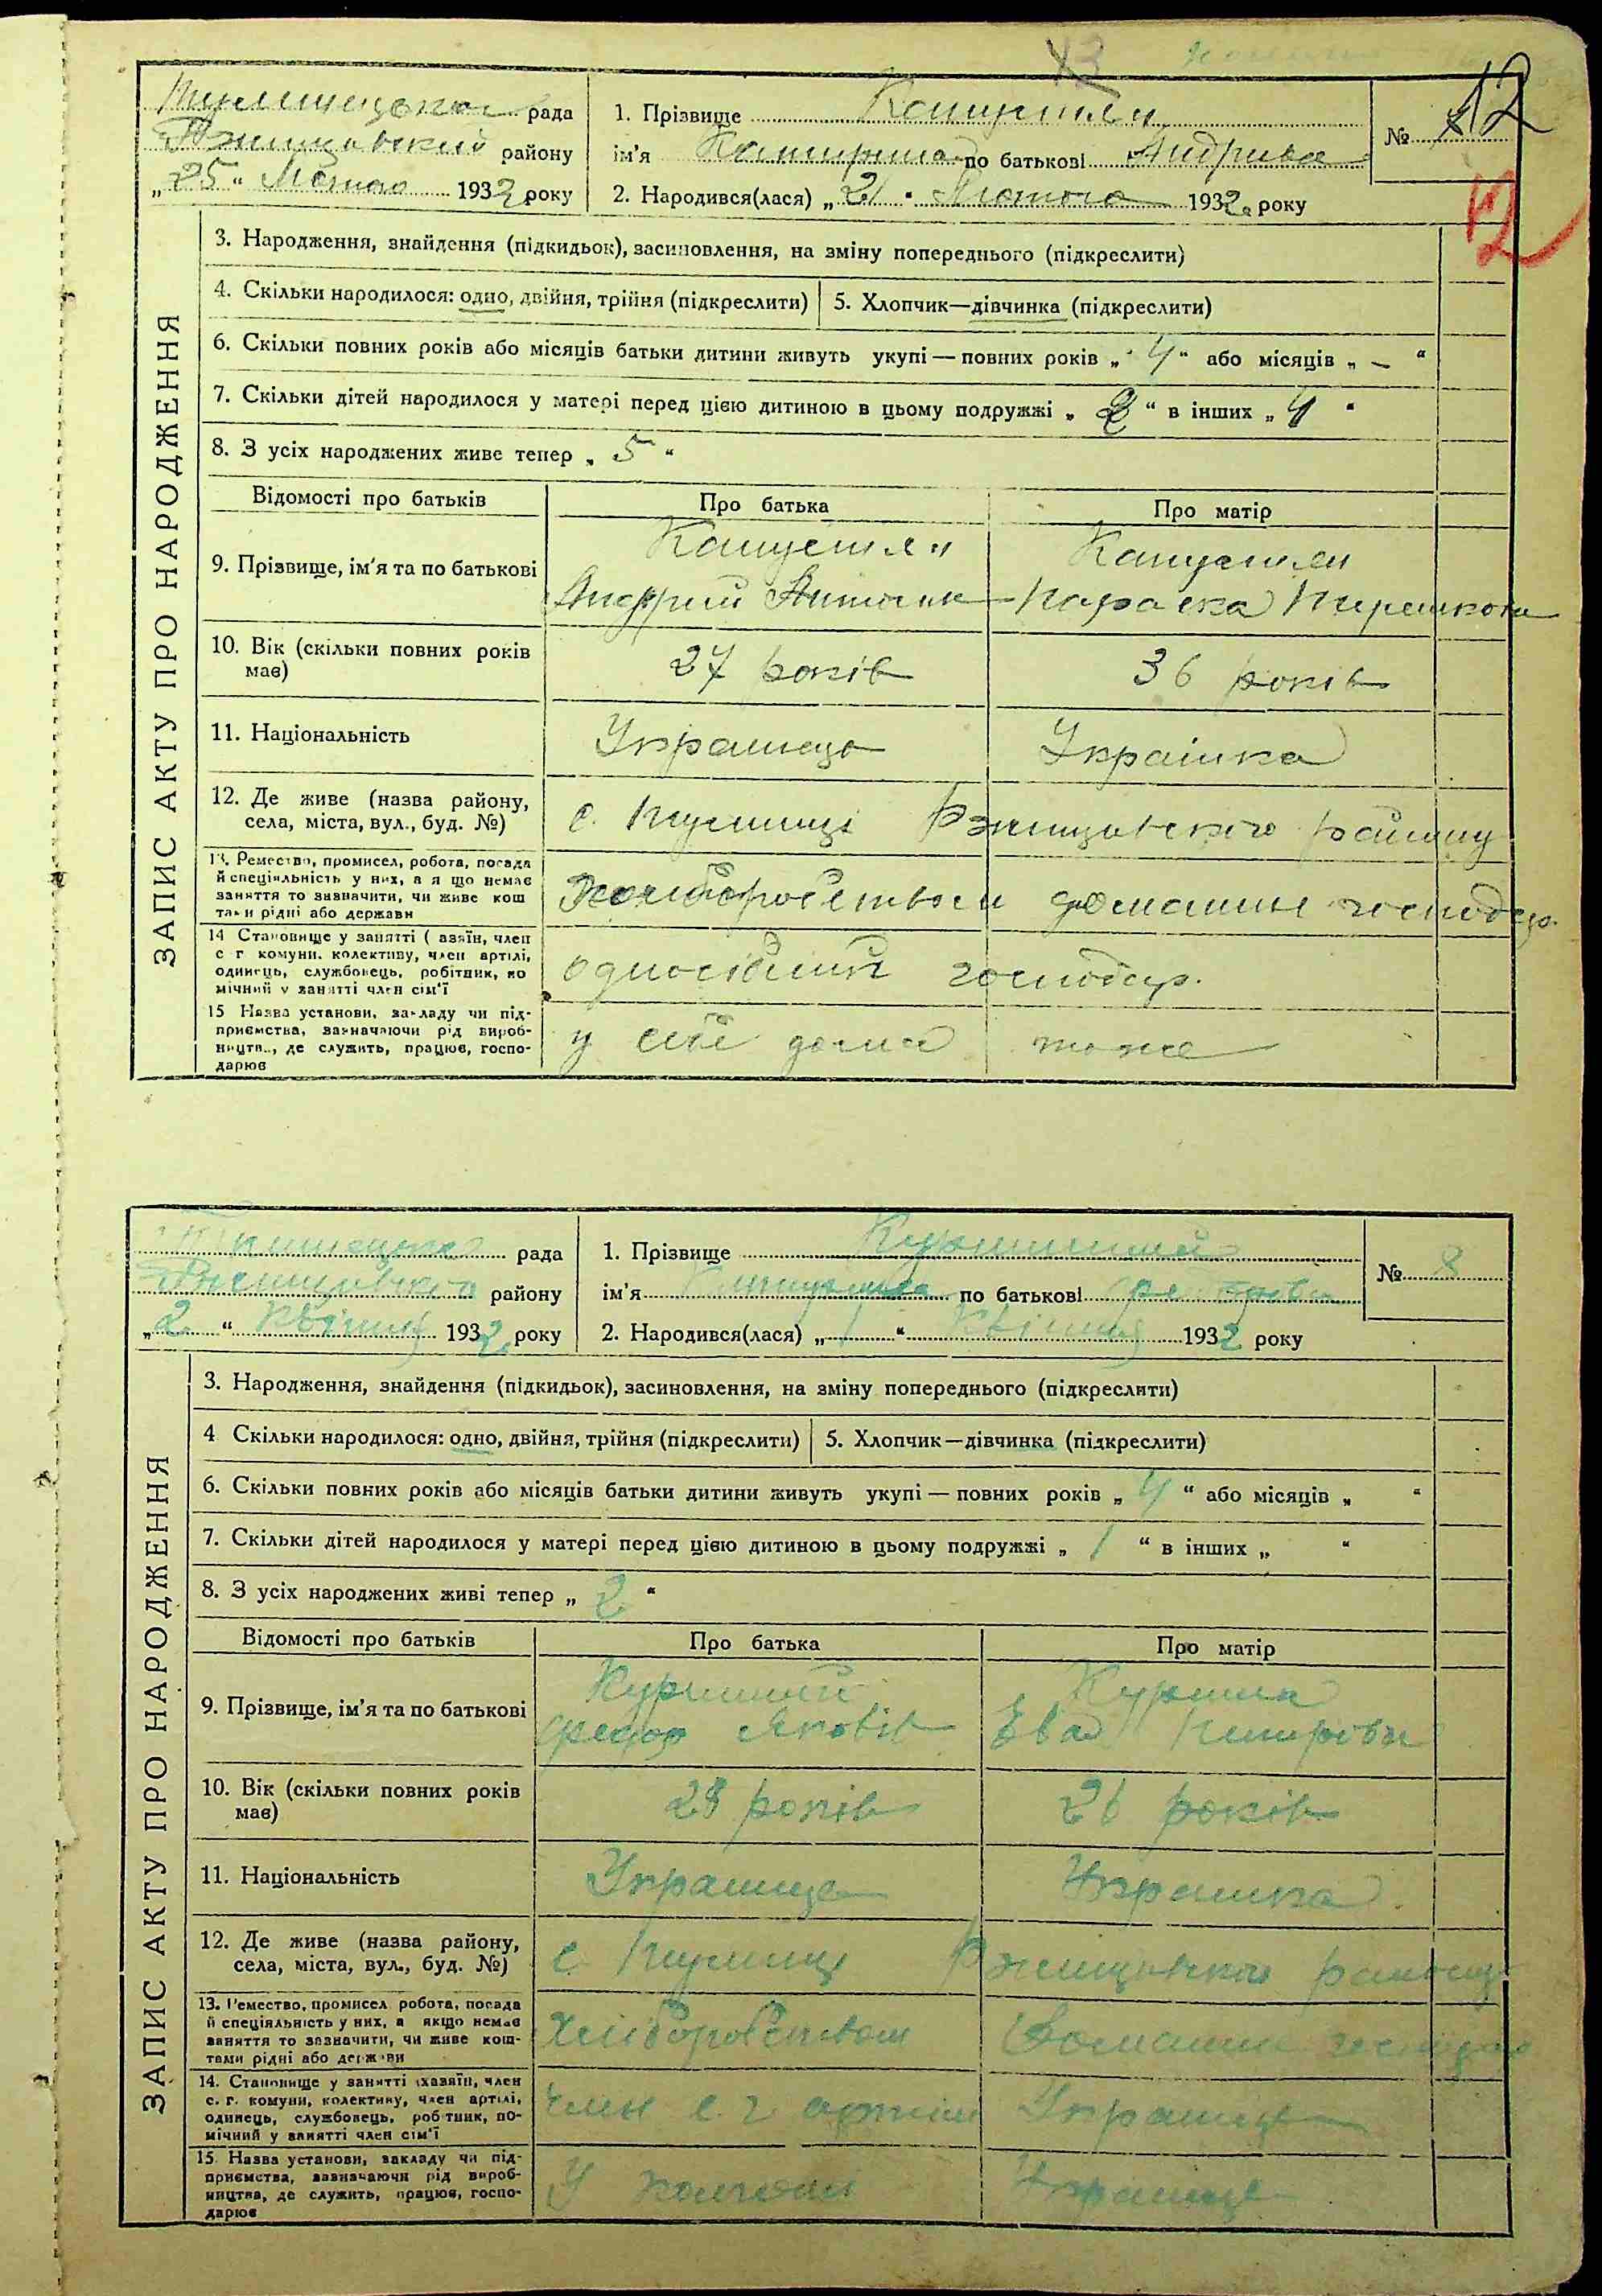 рада
Ржищівський району
„25“ Лютого 1932 року
1. Прізвище Капустян
ім'я по батькові Андрієва
2. Народився(лася) „21“ Лютого 1932 року
№ 12
12
ЗАПИС АКТУ ПРО НАРОДЖЕННЯ
3. Народження, знайдення (підкидьок), засиновлення, на зміну попереднього (підкреслити)
4. Скільки народилося: одно, двійня, трійня (підкреслити)
5. Хлопчик—дівчинка (підкреслити)
6. Скільки повних років або місяців батьки дитини живуть укупі — повних років „4“ або місяців „–“
7. Скільки дітей народилося у матері перед цією дитиною в цьому подружжі „2“ в інших „4“
8. З усіх народжених живе тепер „5“
Відомості про батьків
Про батька
Про матір
9. Прізвище, ім'я та по батькові
Капустян
Андрій
Капустян
Параска
10. Вік (скільки повних років
має)
27 років
36 років
11. Національність
Українець
Українка
12. Де живе (назва району,
села, міста, вул., буд. №)
с. Ржищівского району
13. Ремество, промисел, робота, посада
й спеціяльність у них, а я що немає
заняття то зазначити, чи живе кош
тами рідні або держави
Хліборобством домашнє господар.
14 Становище у занятті ( азяїн, член
с г комуни, колективу, член артілі,
одинець, службовець, робітник, по
мічний у занятті член сім'ї
односібний господар.
15 Назва установи, закладу чи під-
приємства, зазначаючи рід вироб-
ництв., де служить, працює, госпо-
дарює
у себе дома
тоже
рада
району
„2“ Квітня 1932 року
1. Прізвище
ім'я по батькові
2. Народився(лася) „1“ Квітня 1932 року
№ 8
ЗАПИС АКТУ ПРО НАРОДЖЕННЯ
3. Народження, знайдення (підкидьок), засиновлення, на зміну попереднього (підкреслити)
4 Скільки народилося: одно, двійня, трійня (підкреслити)
5. Хлопчик—дівчинка (підкреслити)
6. Скільки повних років або місяців батьки дитини живуть укупі — повних років „4“ або місяців „ “
7. Скільки дітей народилося у матері перед цією дитиною в цьому подружжі „1“ в інших „ “
8. З усіх народжених живі тепер „2“
Відомості про батьків
Про батька
Про матір
9. Прізвище, ім'я та по батькові
Федор Яковів
Ева
10. Вік (скільки повних років
має)
28 років
26 років
11. Національність
Українец
Українка
12. Де живе (назва району,
села, міста, вул., буд. №)
с. Ржищівского району
13. Ремество, промисел робота, посада
й спеціяльність у них, а якщо немає
заняття то зазначити, чи живе кош-
тами рідні або держави
Хліборобством
Домашне господар
14. Становище у занятті (хазяїн, член
с. г. комуни, колективу, член артілі,
одинець, службовець, робітник, по-
мічний у занятті член сім'ї
член с. г артіли
15. Назва установи, закладу чи під-
приємства, зазначаючи рід вироб-
ництва, де служить, працює, госпо-
дарює
У колгоспі